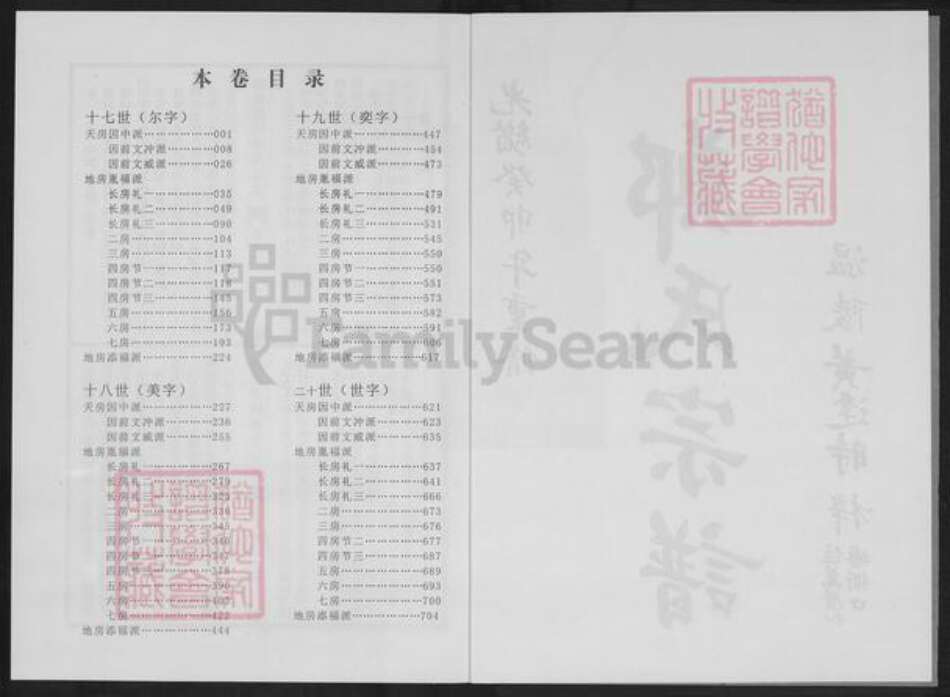 本卷目录
十七世（尔字）
天房因中派………………001
因前文冲派…………008
因前文威派…………026
地房胤福派
长房礼一……………035
长房礼二……………049
长房礼三……………090
二房…………………104
三房…………………113
四房节一……………117
四房节二……………118
四房节三……………145
五房…………………156
六房…………………173
七房…………………193
地房添福派………………224
十八世（美字）
天房因中派………………227
因前文冲派…………236
因前文威派…………255
地房胤福派
长房礼一……………267
长房礼二……………279
长房礼三……………323
二房…………………336
三房…………………345
四房节一……………346
四房节二……………347
四房节三……………378
五房…………………390
六房…………………
七房…………………422
地房添福派………………444
十九世（奕字）
天房因中派………………447
因前文冲派…………454
因前文威派…………473
地房胤福派
长房礼一……………479
长房礼二……………491
长房礼三……………531
二房…………………545
三房…………………550
四房节一……………550
四房节二……………551
四房节三……………573
五房…………………582
六房…………………591
七房…………………606
地房添福派………………617
二十世（世字）
天房因中派………………621
因前文冲派…………623
因前文威派…………635
地房胤福派
长房礼一……………637
长房礼二……………641
长房礼三……………666
二房…………………673
三房…………………676
四房节二……………677
四房节三……………687
五房…………………689
六房…………………693
七房…………………700
地房添福派………………704
FamilySearch